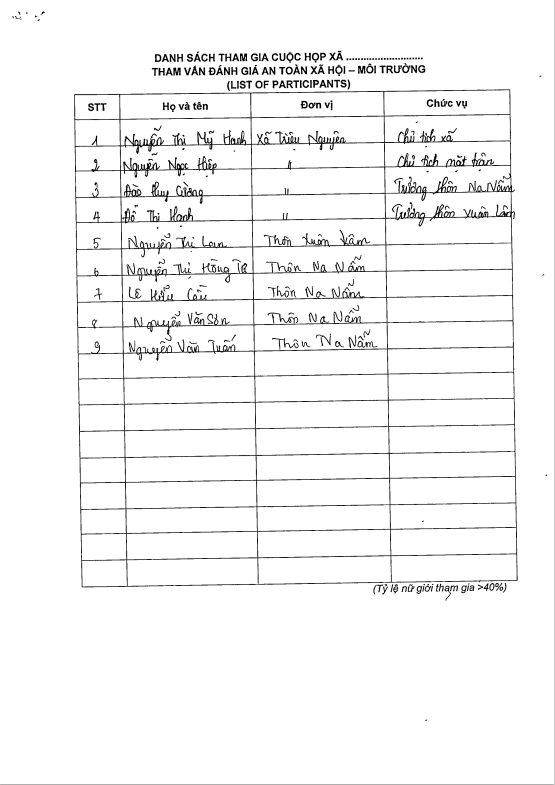 DANH SÁCH THAM GIA CUỘC HỌP XÃ ...........................
THAM VẤN ĐÁNH GIÁ AN TOÀN XÃ HỘI – MÔI TRƯỜNG
(LIST OF PARTICIPANTS)
STT Họ và tên Đơn vị Chức vụ
1 Nguyễn Thị Mỹ Hạnh Xã Triệu Nguyên Chủ tịch xã
2 Nguyễn Ngọc Hiệp " Chủ tịch mặt trận
3 Đào Huy Cường " Trưởng thôn Na Nẫm
4 Đỗ Thị Hạnh " Trưởng thôn Xuân Lâm
5 Nguyễn Thị Loan Thôn Xuân Lâm
6 Nguyễn Thị Hồng Thôn Na Nẫm
7 Lê Hiếu Thôn Na Nẫm
8 Nguyễn Văn Sơn Thôn Na Nẫm
9 Nguyễn Văn Tuấn Thôn Na Nẫm
(Tỷ lệ nữ giới tham gia >40%)